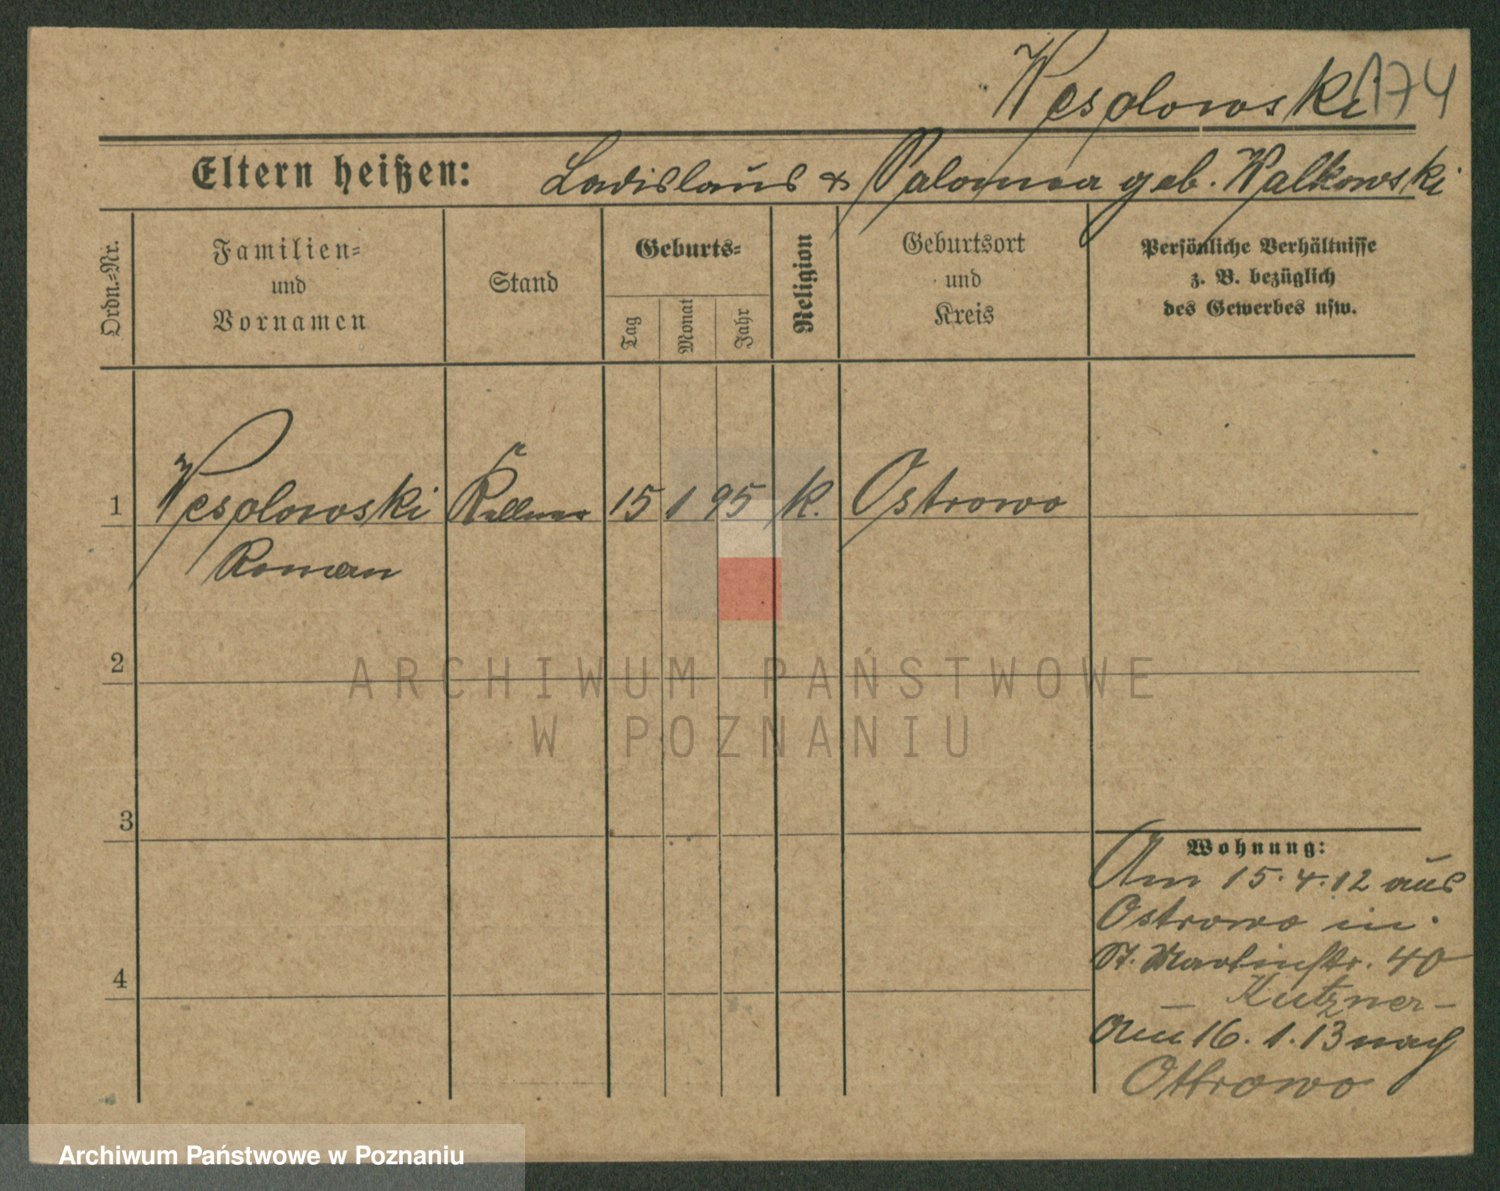 Wesolowski 174
Eltern heißen: Ladislaus & Salomea geb. Walkowski
Ordn.-Nr.
Familien-
und
Vornamen
Stand
Geburts-
Tag
Monat
Jahr
Religion
Geburtsort
und
Kreis
Persönliche Verhältnisse
z. B. bezüglich
des Gewerbes usw.
1 Wesolowski Kellner 15 1 95 k. Ostrowo
Roman
2
3
4
Wohnung:
Am 15.4.12 aus
Ostrowo in
St. Martinstr. 40
- Kutzner -
Am 16.1.13 nach
Ostrowo
ARCHIWUM PAŃSTWOWE
W POZNANIU
Archiwum Państwowe w Poznaniu